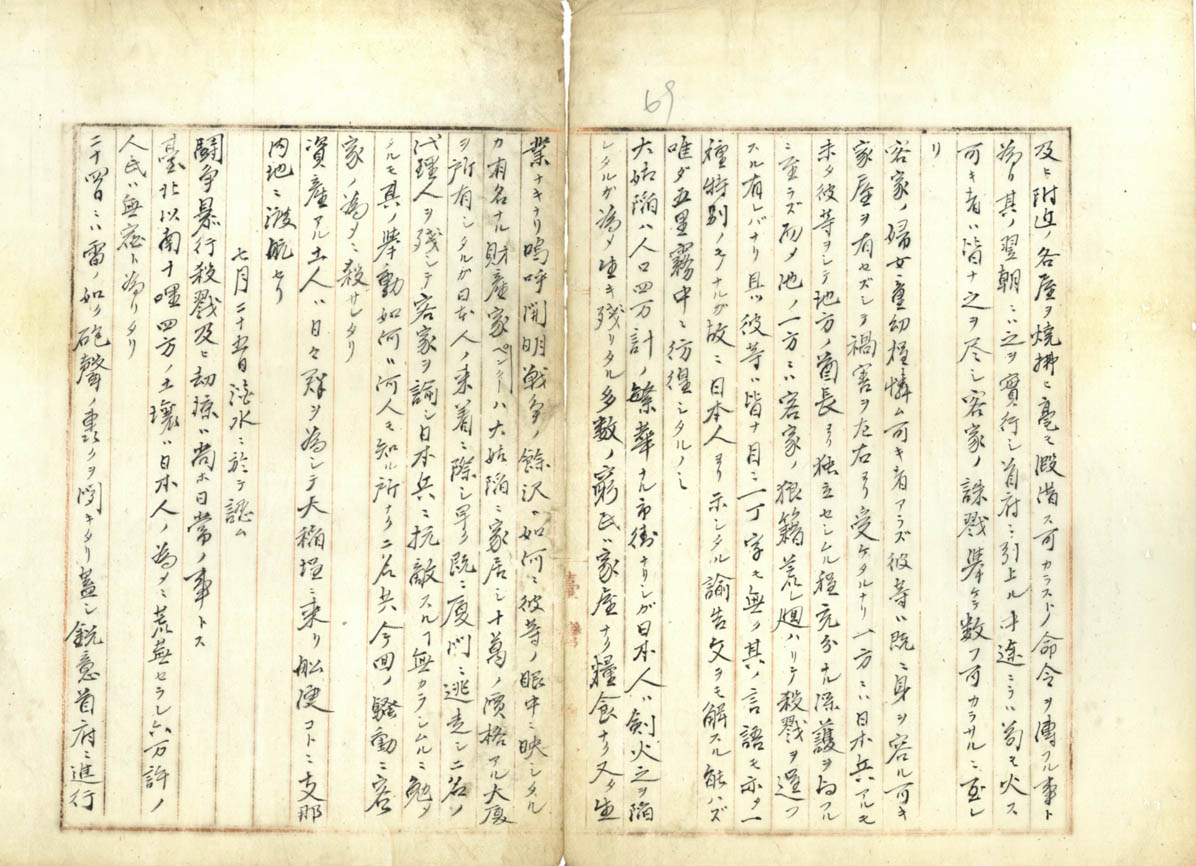 69
及ヒ附近ノ各屋ヲ焼拂ヒ毫モ假借ス可カラストノ命令ヲ傳フル事ト
為リ其ノ翌朝ニハ之ヲ實行シ首府ニ引上ル中途ニテハ苟モ火ス
可キ者ハ皆ナ之ヲ尽シ客家ノ誅戮挙ケテ数フ可カラサルニ至レ
リ
客家ノ婦女童幼程憐ム可キ者アラズ彼等ハ既ニ身ヲ容ル可キ
家屋ヲ有セズシテ禍害ヲ左右ヨリ受ケタルナリ一方ニハ日本兵アルモ
未タ彼等ヲシテ地方ノ酋長ヨリ独立セシムル程充分ナル保護ヲ与フル
ニ至ラズ而メ他ノ一方ニハ客家ノ狼籍荒レ廻ハリテ殺戮ヲ逞フ
スル有レバナリ且ツ彼等ハ皆ナ目ニ一丁字モ無ク其ノ言語モ亦タ一
種特別ノモノナルガ故ニ日本人ヨリ示シタル諭告文ヲモ解スル能ハズ
唯ダ五里霧中ニ彷徨シタルノミ
大姑陥ハ人口四万計ノ繁華ナル市街ナリシガ日本人ハ剣火之ヲ陥
レタルガ為メ生キ残リタル多数ノ窮民ハ家屋ナク糧食ナク又タ生
業ナキナリ嗚呼開明戦争ノ餘沢ハ如何ニ彼等ノ眼中ニ映シタル
カ有名ナル財産家ペンクーハ大姑陥ニ家居シ十萬ノ價格アル大厦
ヲ所有シタルガ日本人ノ来着ニ際シ早ク既ニ厦門ニ逃走シ二名ノ
代理人ヲ残シテ客家ヲ諭シ日本兵ニ抗敵スルヿ無カラシムルニ勉メ
タルモ其ノ挙動如何ハ何人モ知ル所ナク二名共今回ノ騒動ニ客
家ノ為メニ殺サレタリ
資産アル土人ハ日々群ヲ為シテ大稲埕ニ乗リ舩便コトニ支那
内地ニ渡航セリ
七月二十五日淡水ニ於テ認ム
闘争暴行殺戮及ヒ劫掠ハ尚ホ日常ノ事トス
臺北以南十哩四方ノ土壌ハ日本人ノ為メニ荒蕪セラレ六万許ノ
人民ハ無宿ト為リタリ
二十四日ニハ雷ノ如ク砲聲ノ轟クヲ聞キタリ蓋シ鋭意首府ニ進行